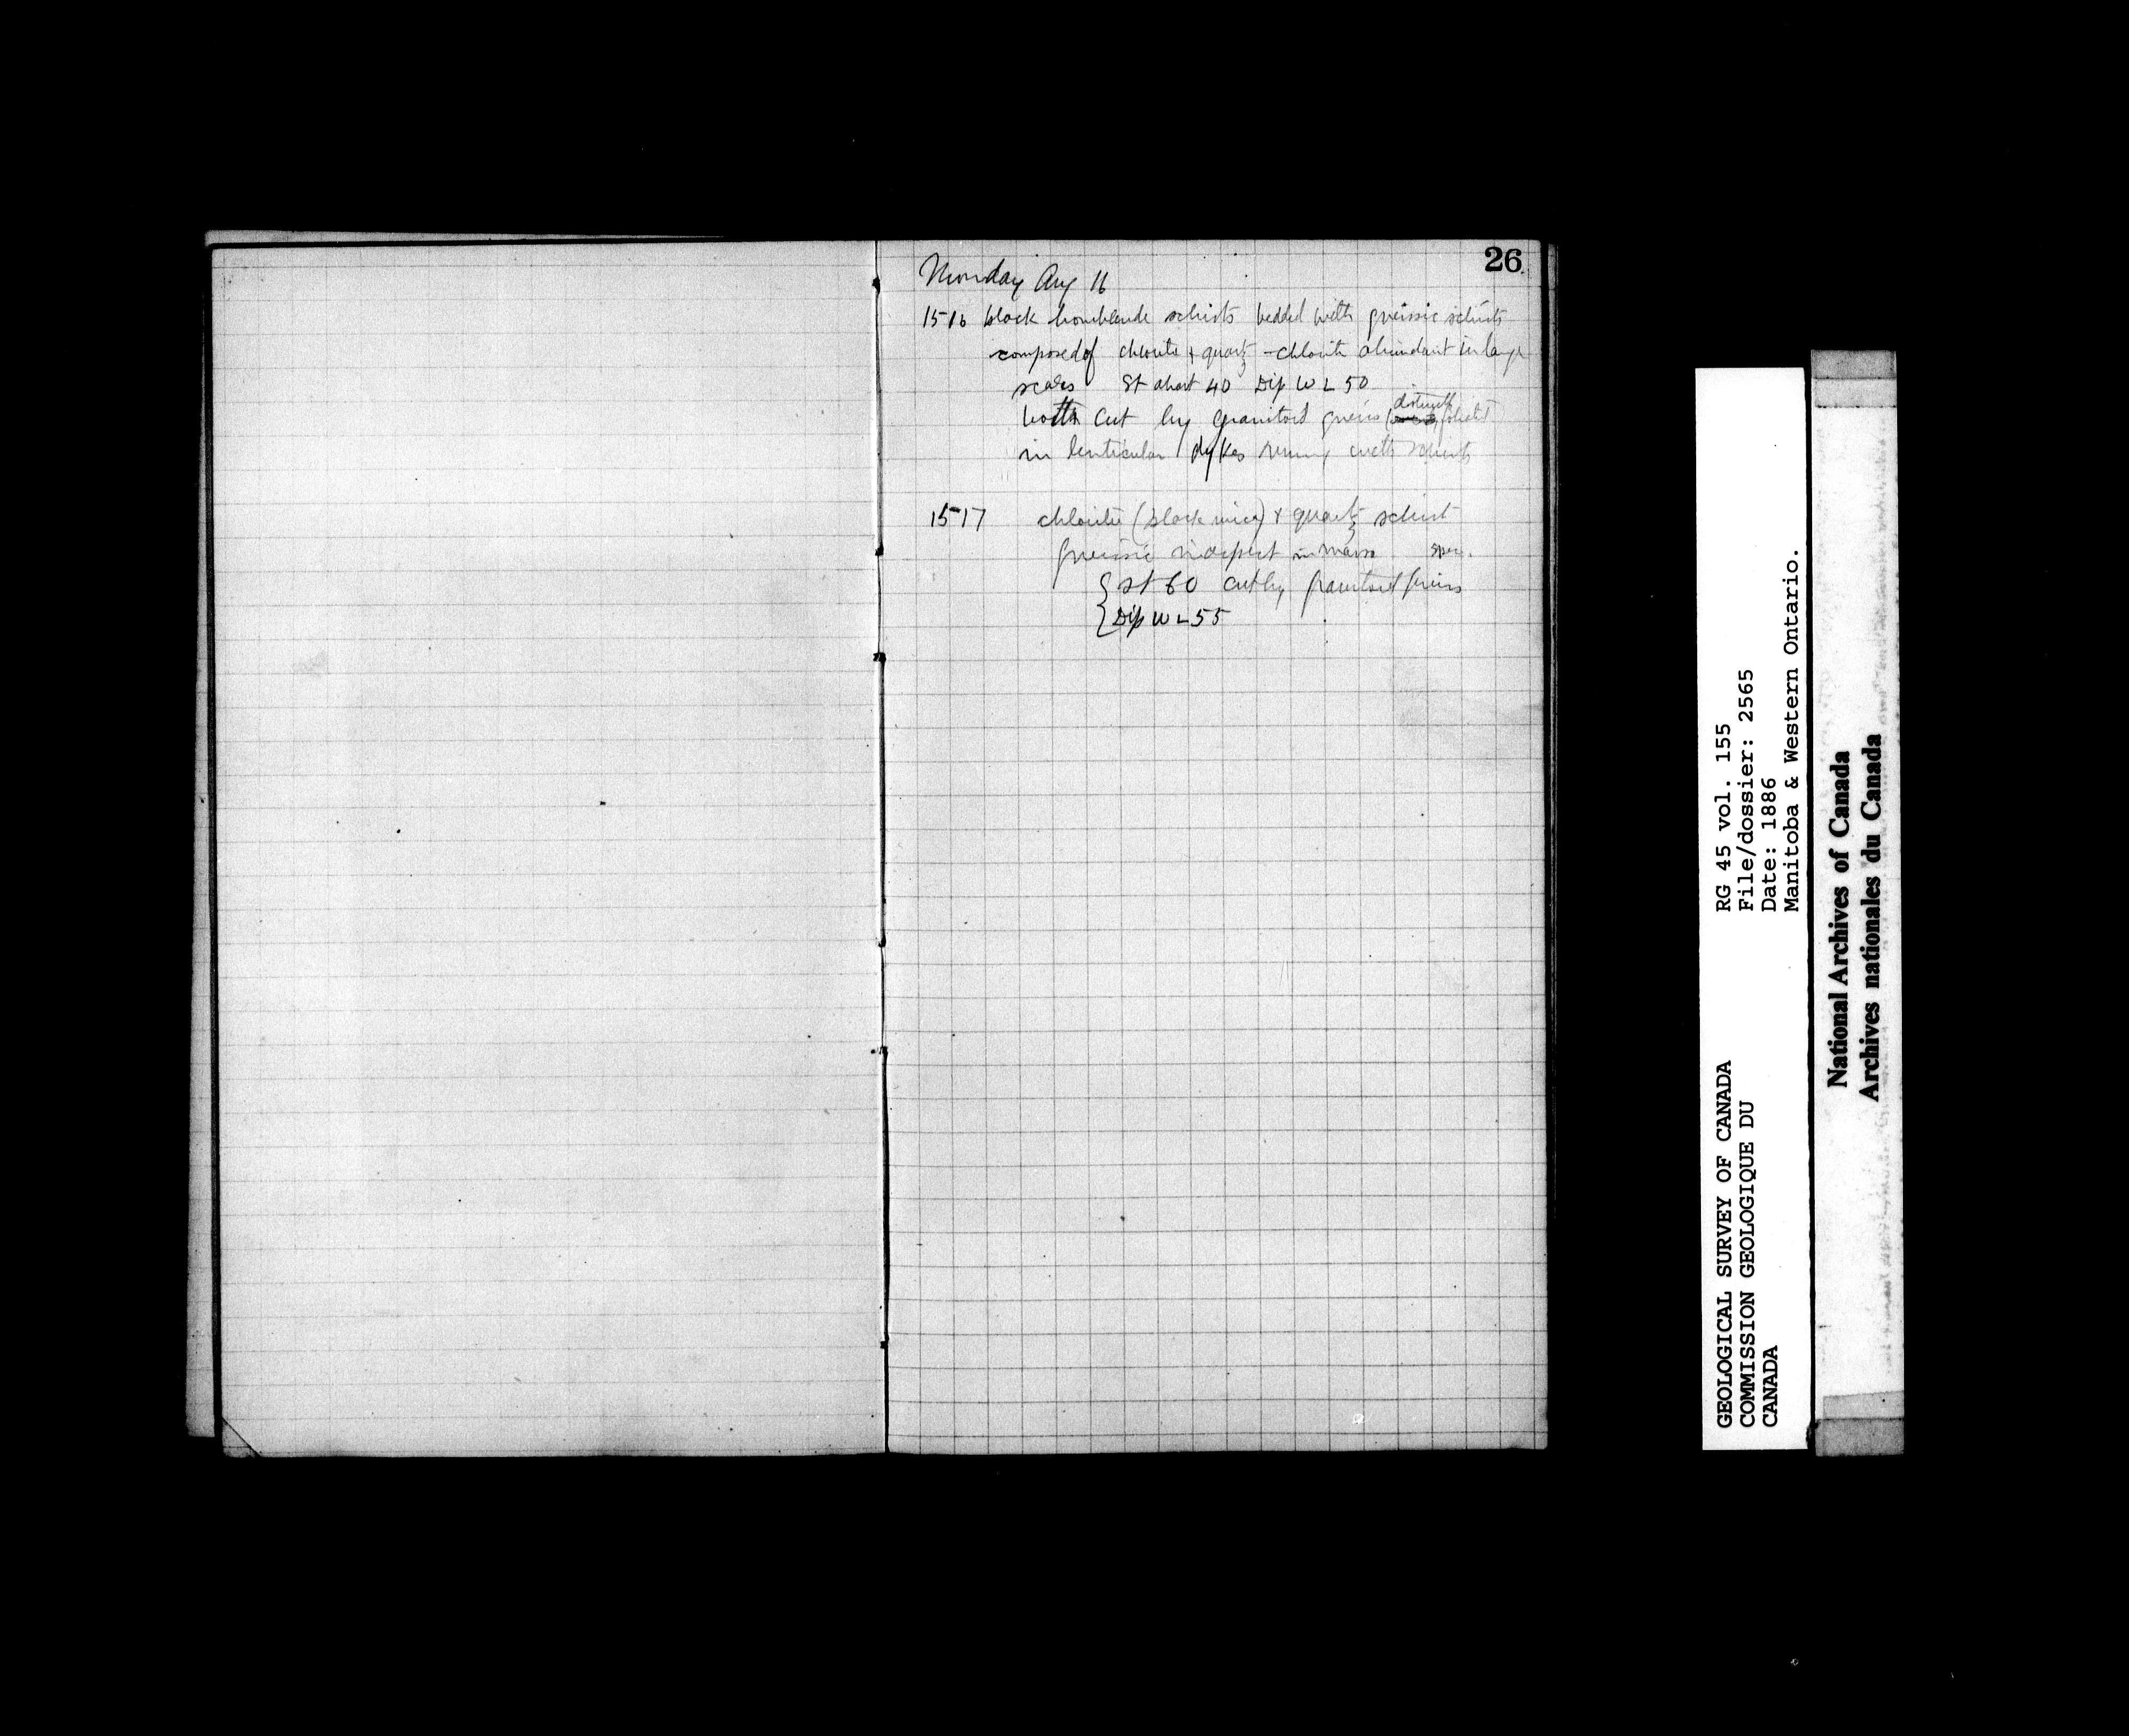 26
Monday Aug 16
1516 black hornblende schists bedded with gneissic schists
composed of chlorite & quartz - chlorite abundant in large
scales St about 40 Dip W L 50
both cut by granitoid gneiss (distinctly foliated
in lenticular dykes running with schists
1517 chlorite (black mica) & quartz schist
gneissic in aspect in mass spec.
{ St 60 cut by granitoid gneiss
{ Dip W L 55
RG 45 vol. 155
File/dossier: 2565
Date: 1886
Manitoba & Western Ontario.
GEOLOGICAL SURVEY OF CANADA
COMMISSION GEOLOGIQUE DU
CANADA
National Archives of Canada
Archives nationales du Canada